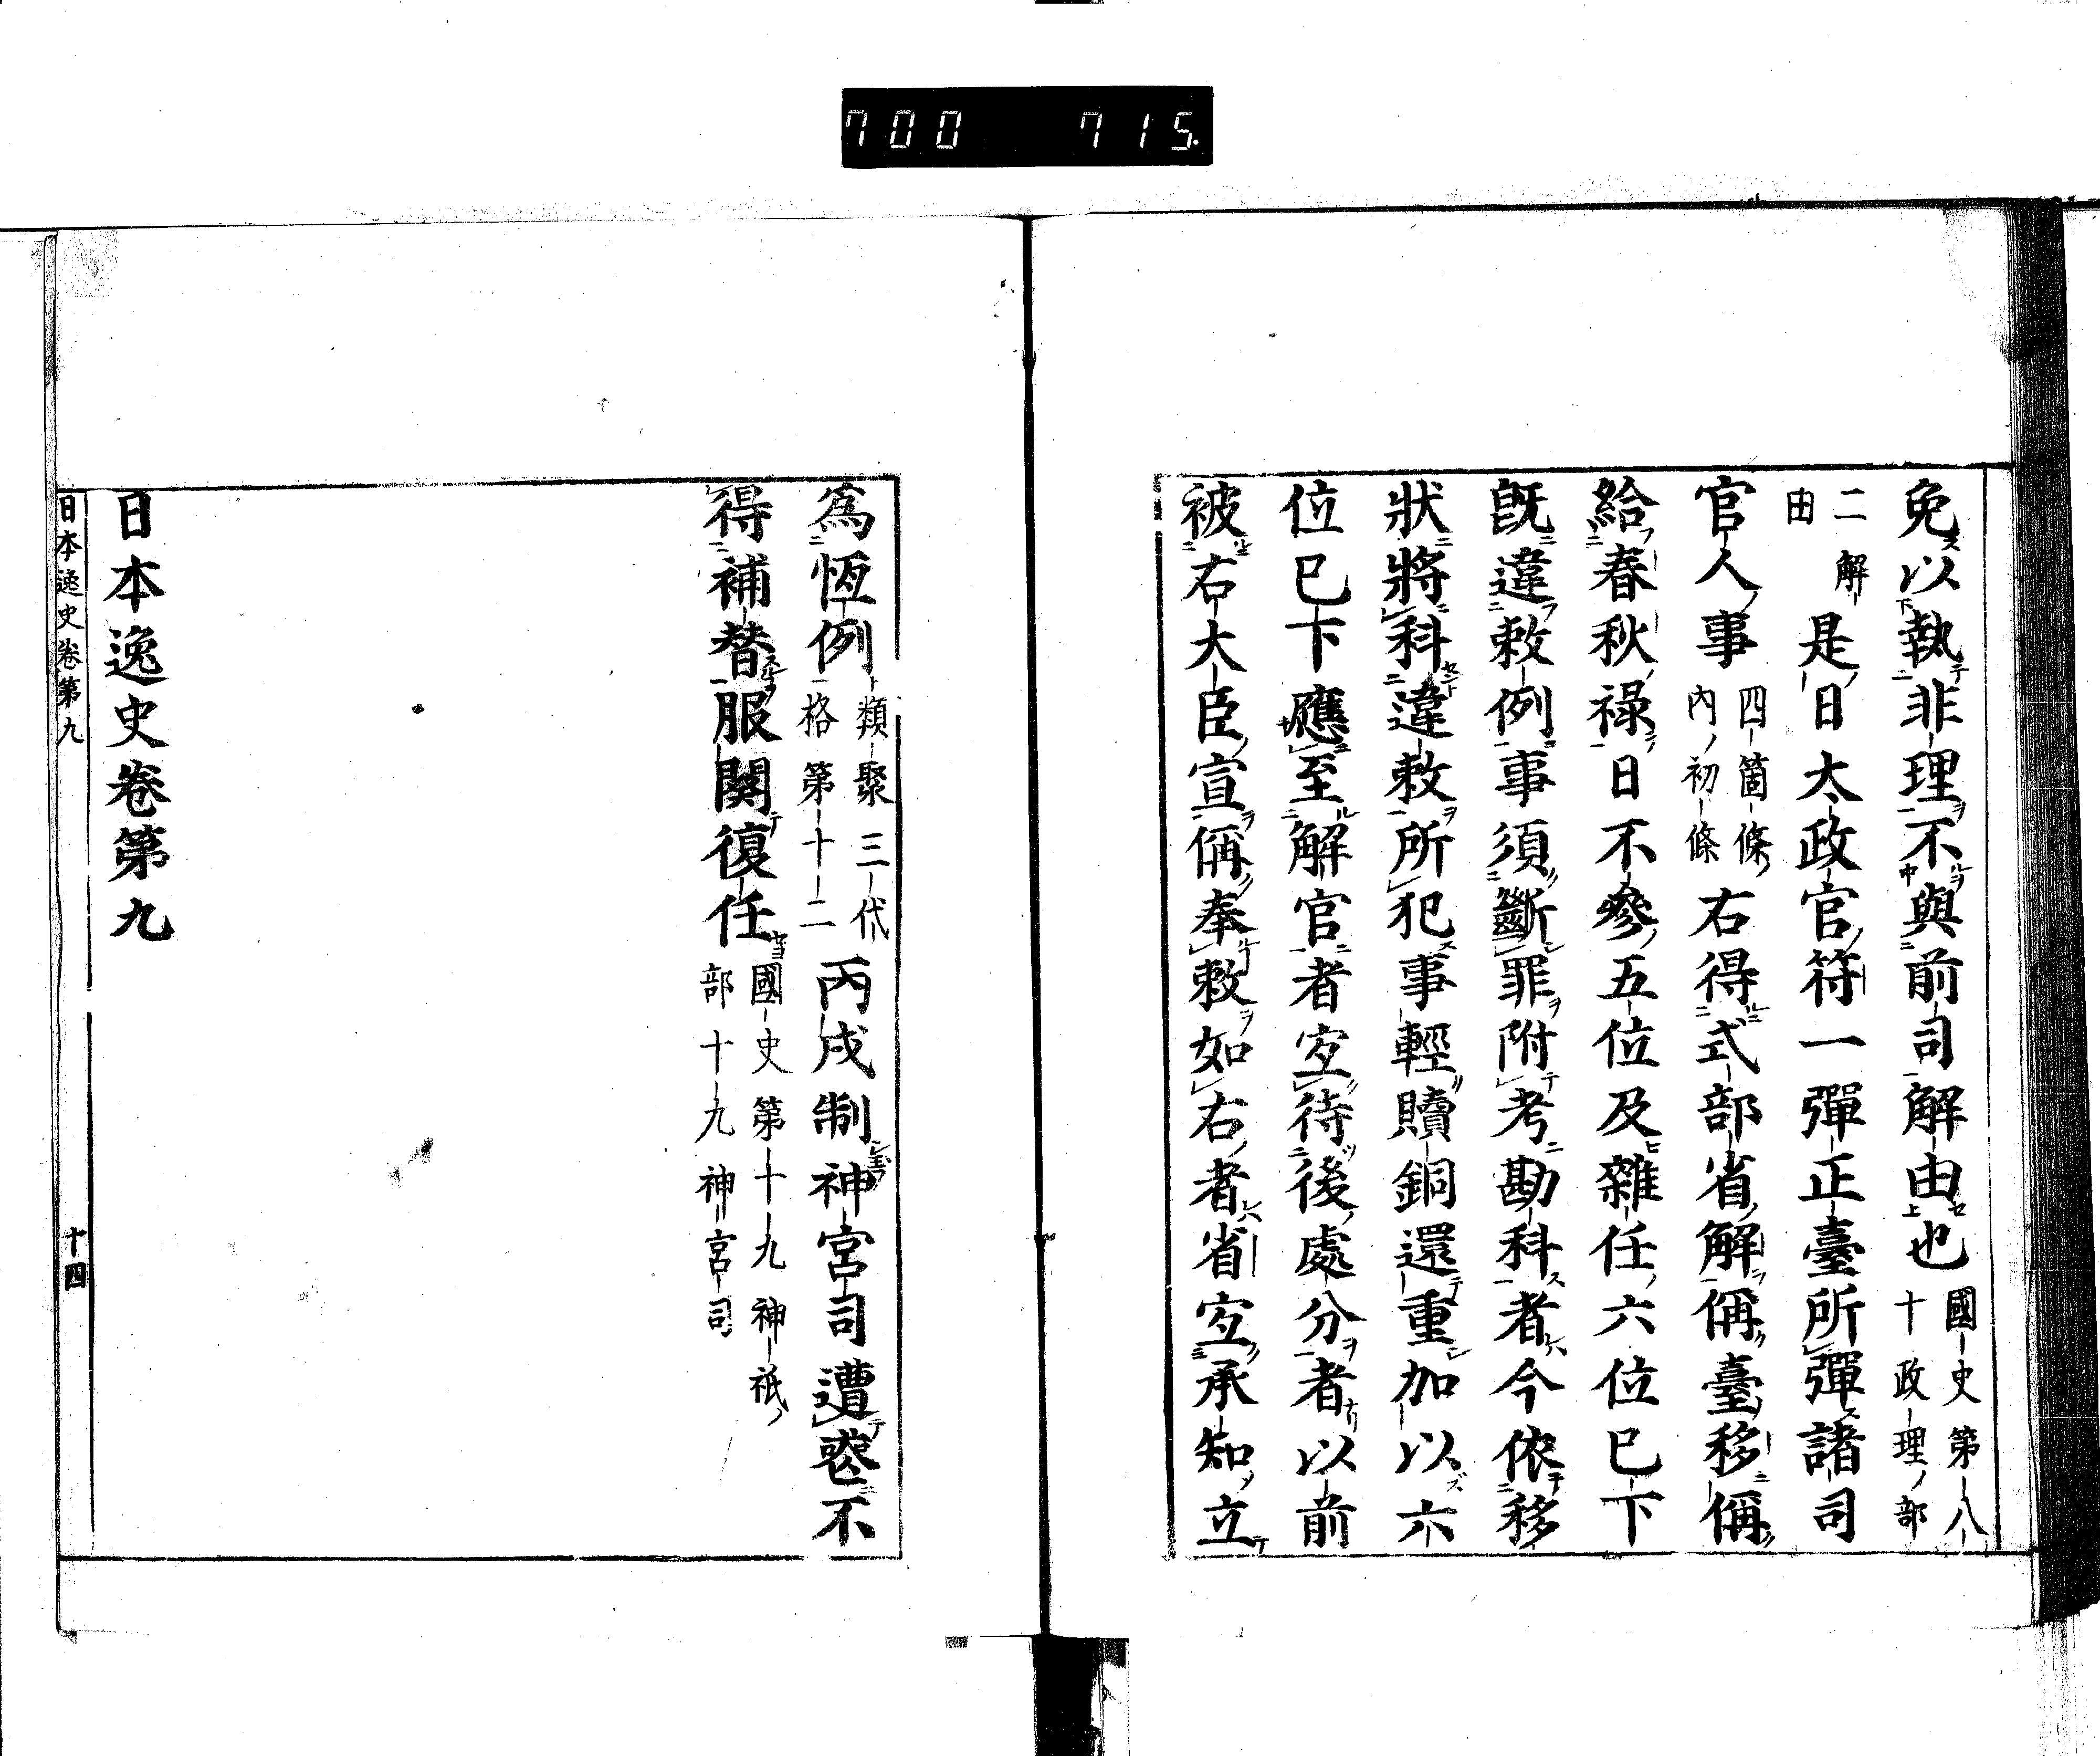 700 715
免以執非理不與前司解由也國史第八十政理部
二解由是日太政官符一彈正臺所彈諸司
官人事四箇條內初條右得式部省解偁臺移偁
給春秋祿日不參五位及雜任六位已下
既違敕例事須斷罪附考勘科者今依移
狀將科違敕所犯事輕贖銅還重加以六
位已下應至解官者宐待後處分者以前
被右大臣宣偁奉敕如右者省宐承知立
爲恆例類聚三代格第十二丙戌制神宮司遭䘮不
得補替服闋復任國史第十九神祇部十九神宮司
日本逸史卷第九
日本逸史卷第九 十四